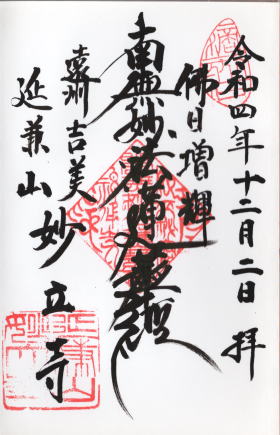 令和四年十二月二日 拝
佛日増輝
南無妙法蓮華経
遠州吉美
延兼山 妙立寺